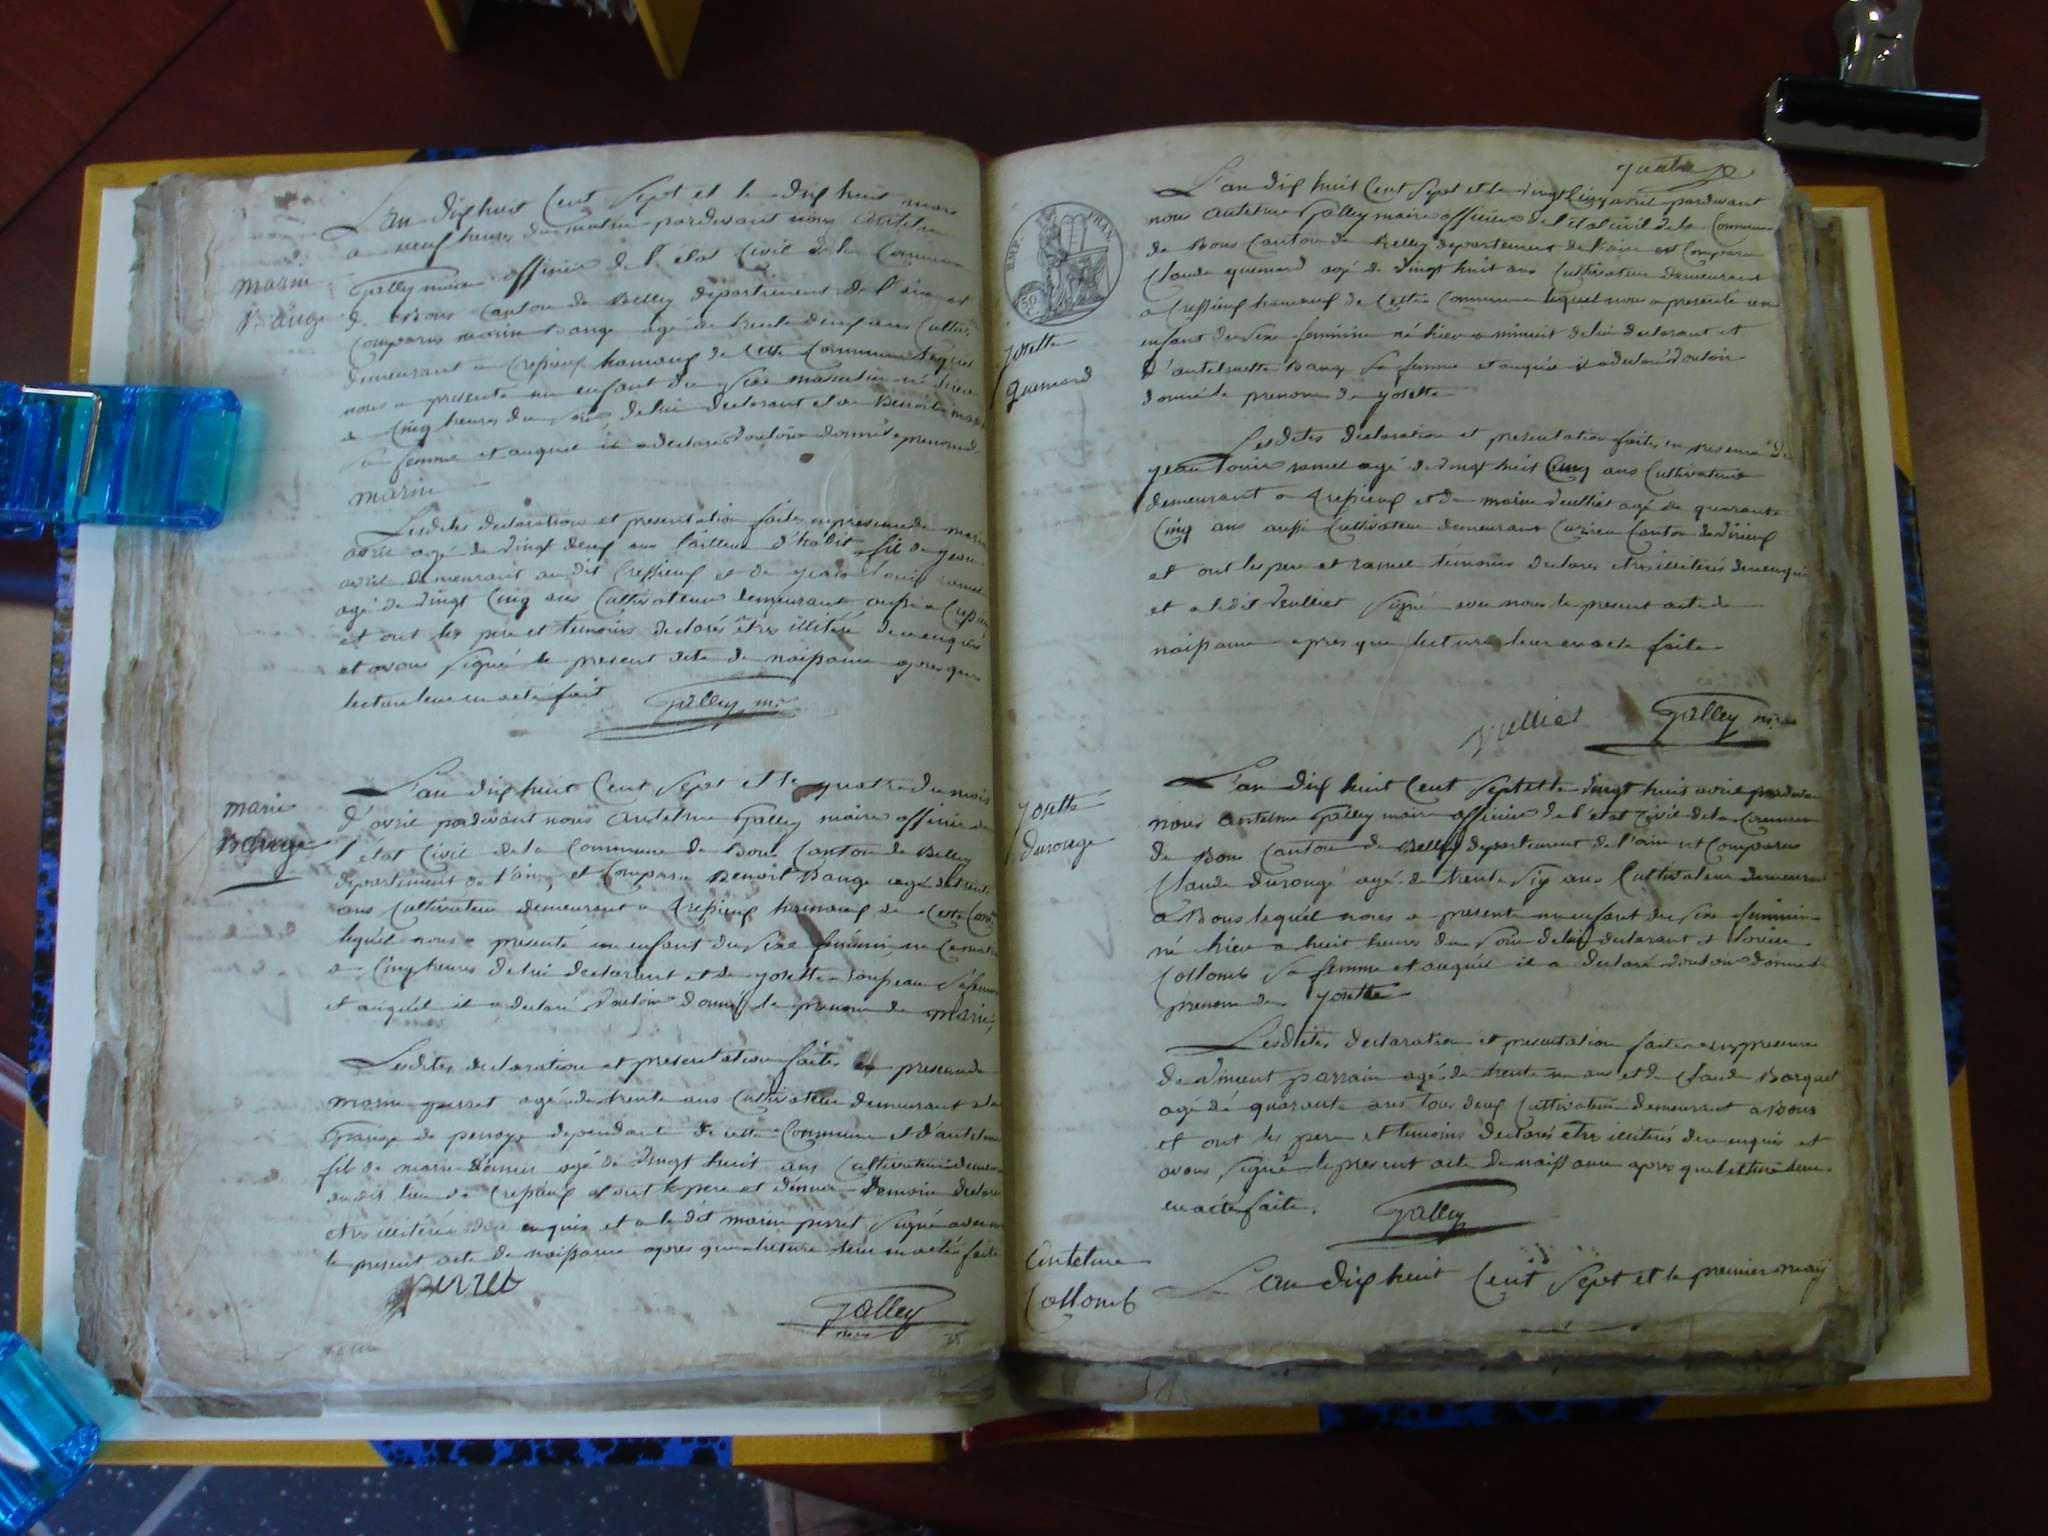 L'an dix huit Cent Sept et le dix huit mars
a neuf heures du matin pardevant nous antelme
Galley maire officier de l'état Civil de la Commune
de Bons Canton de Belley département de l'ain est
Comparu marin Bange agé de trente deux ans Cultiv
demeurant a Crepieux hameaux de Cette Commune lequel
nous a presenté un enfant du sexe masculin né hier
a Cinq heures du soir, de lui declarant et de Benoite
sa femme et auquel il a declaré vouloir donner le prenom d
marin
marin
Bange
Lesdites declaration et presentation faites en presence de marin
avril agé de vingt deux ans tailleur d'habit fils de jean
avril demeurant au dit Crepieux et de jean Louis ramel
agé de vingt Cinq ans Cultivateur demeurant aussi a Crepieux
et ont les pere et temoins declarés etres illiteré de ce enquis
et avons signé le present acte de naissance apres que
lecture leur en a été fait
Galley m.re
marie
Bange
L'an dix huit Cent Sept et le quatre du mois
d'avril pardevant nous antelme Galley maire officier de
l'etat Civil de la Commune de Bons Canton de Belley
departement de l'ain, est Comparu Benoit Bange agé de trente
ans Cultivateur demeurant a Crepieux hameaux de Cette Com
lequel nous a presenté un enfant du sexe feminin, né Ce matin
a Cinq heures de lui declarant et de josette sa femme
et auquel il a declaré vouloir donner le prenom de marie,
Lesdites declaration et presentation faites en presence de
marin perret agé de trente ans Cultivateur demeurant a la
Grange de dependante de cette Commune et d'antelme
fils de marin agé de vingt huit ans Cultivateur demeur
au dit lieu de Crepieux et ont le pere et temoin declaré
etres illiterés de ce enquis et a le dit marin perret signé avec nous
le present acte de naissance apres que lecture leur en a été faite
perret
Galley
maire
35
quatre
EMP. FRAN.
50
josette
quemard
L'an dix huit Cent Sept et le vingt Cinq avril pardevant
nous antelme Galley maire officier de l'état civil de la Commune
de Bons Canton de Belley departement de l'ain est Comparu
Claude quemard agé de vingt huit ans Cultivateur demeurant
a Crepieux hameaux de Cette Commune lequel nous a presenté un
enfant du sexe feminin né hier a minuit de lui declarant et
d'antelmette Bange sa femme et auquel il a declaré vouloir
donné le prenom de josette
Lesdites declaration et presentation faites en presence de
jean Louis ramel agé de vingt huit Cinq ans Cultivateur
demeurant a Crepieux et de marin vulliet agé de quarante
Cinq ans aussi Cultivateur demeurant Canton de virieux
et ont les pere et ramel temoins declarés etres illiterés de ce enquis
et a le dit vulliet signé avec nous le present acte de
naissance apres que lecture leur en a été faite
vulliet
Galley m.re
josette
durouge
L'an dix huit Cent Sept et le vingt huit avril pardevant
nous antelme Galley maire officier de l'état Civil de la Commune
de Bons Canton de Belley departement de l'ain est Comparu
Claude durouge agé de trente six ans Cultivateur demeurant
a Bons lequel nous a presenté un enfant du sexe feminin
né hier a huit heures du soir de lui declarant et Louise
Collomb sa femme et auquel il a declaré vouloir donner le
prenom de josette
Lesdites declaration et presentation faites en presence
de vincent parrain agé de trente un ans et de Claude
agé de quarante ans tous deux Cultivateurs demeurant a Bons
et ont les pere et temoins declarés etres illiterés de ce enquis et
avons signé le present acte de naissance apres que lecture leur
en a été faite.
Galley
antelme
Collomb
L'an dix huit Cent Sept et le premier may